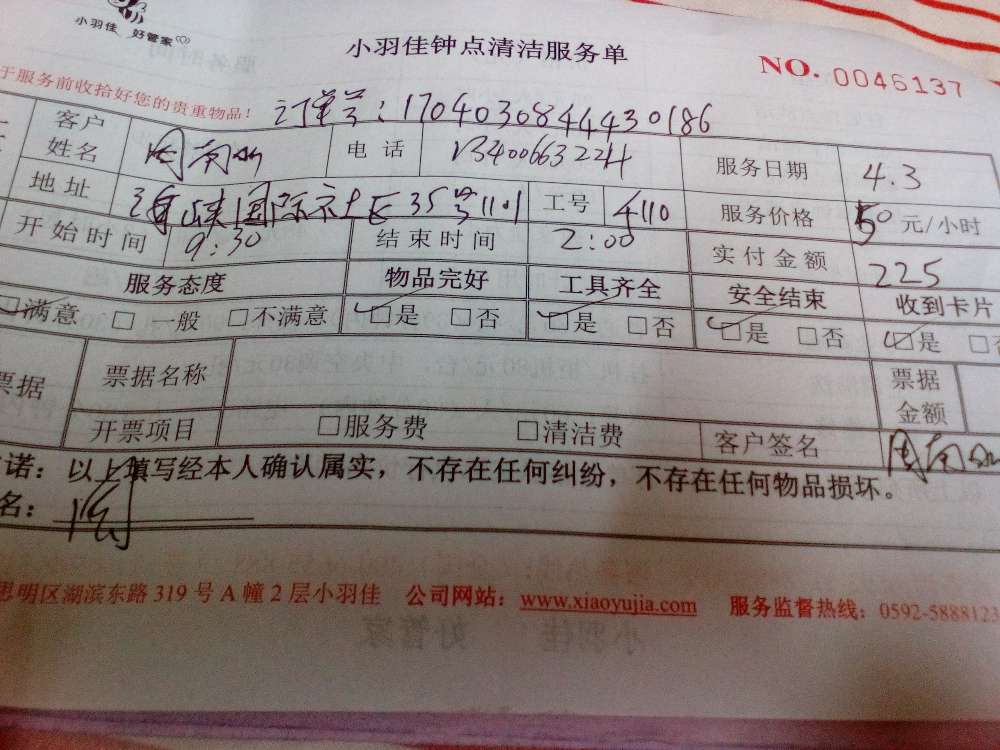 小羽佳 好管家
小羽佳钟点清洁服务单
NO. 0046137
于服务前收拾好您的贵重物品!
订单号:17040308444430186
客户姓名 周南 电话 13400663224 服务日期 4.3
地址 海峡国际社区35号1101 工号 4110 服务价格 50 元/小时
开始时间 9:30 结束时间 2:00 实付金额 225
服务态度 物品完好 工具齐全 安全结束 收到卡片
☑满意 □一般 □不满意 ☑是 □否 ☑是 □否 ☑是 □否 ☑是 □否
票据 票据名称 票据金额
开票项目 □服务费 □清洁费 客户签名 周南
诺:以上填写经本人确认属实,不存在任何纠纷,不存在任何物品损坏。
名:
思明区湖滨东路 319 号 A 幢 2 层小羽佳 公司网站:www.xiaoyujia.com 服务监督热线:0592-5888123